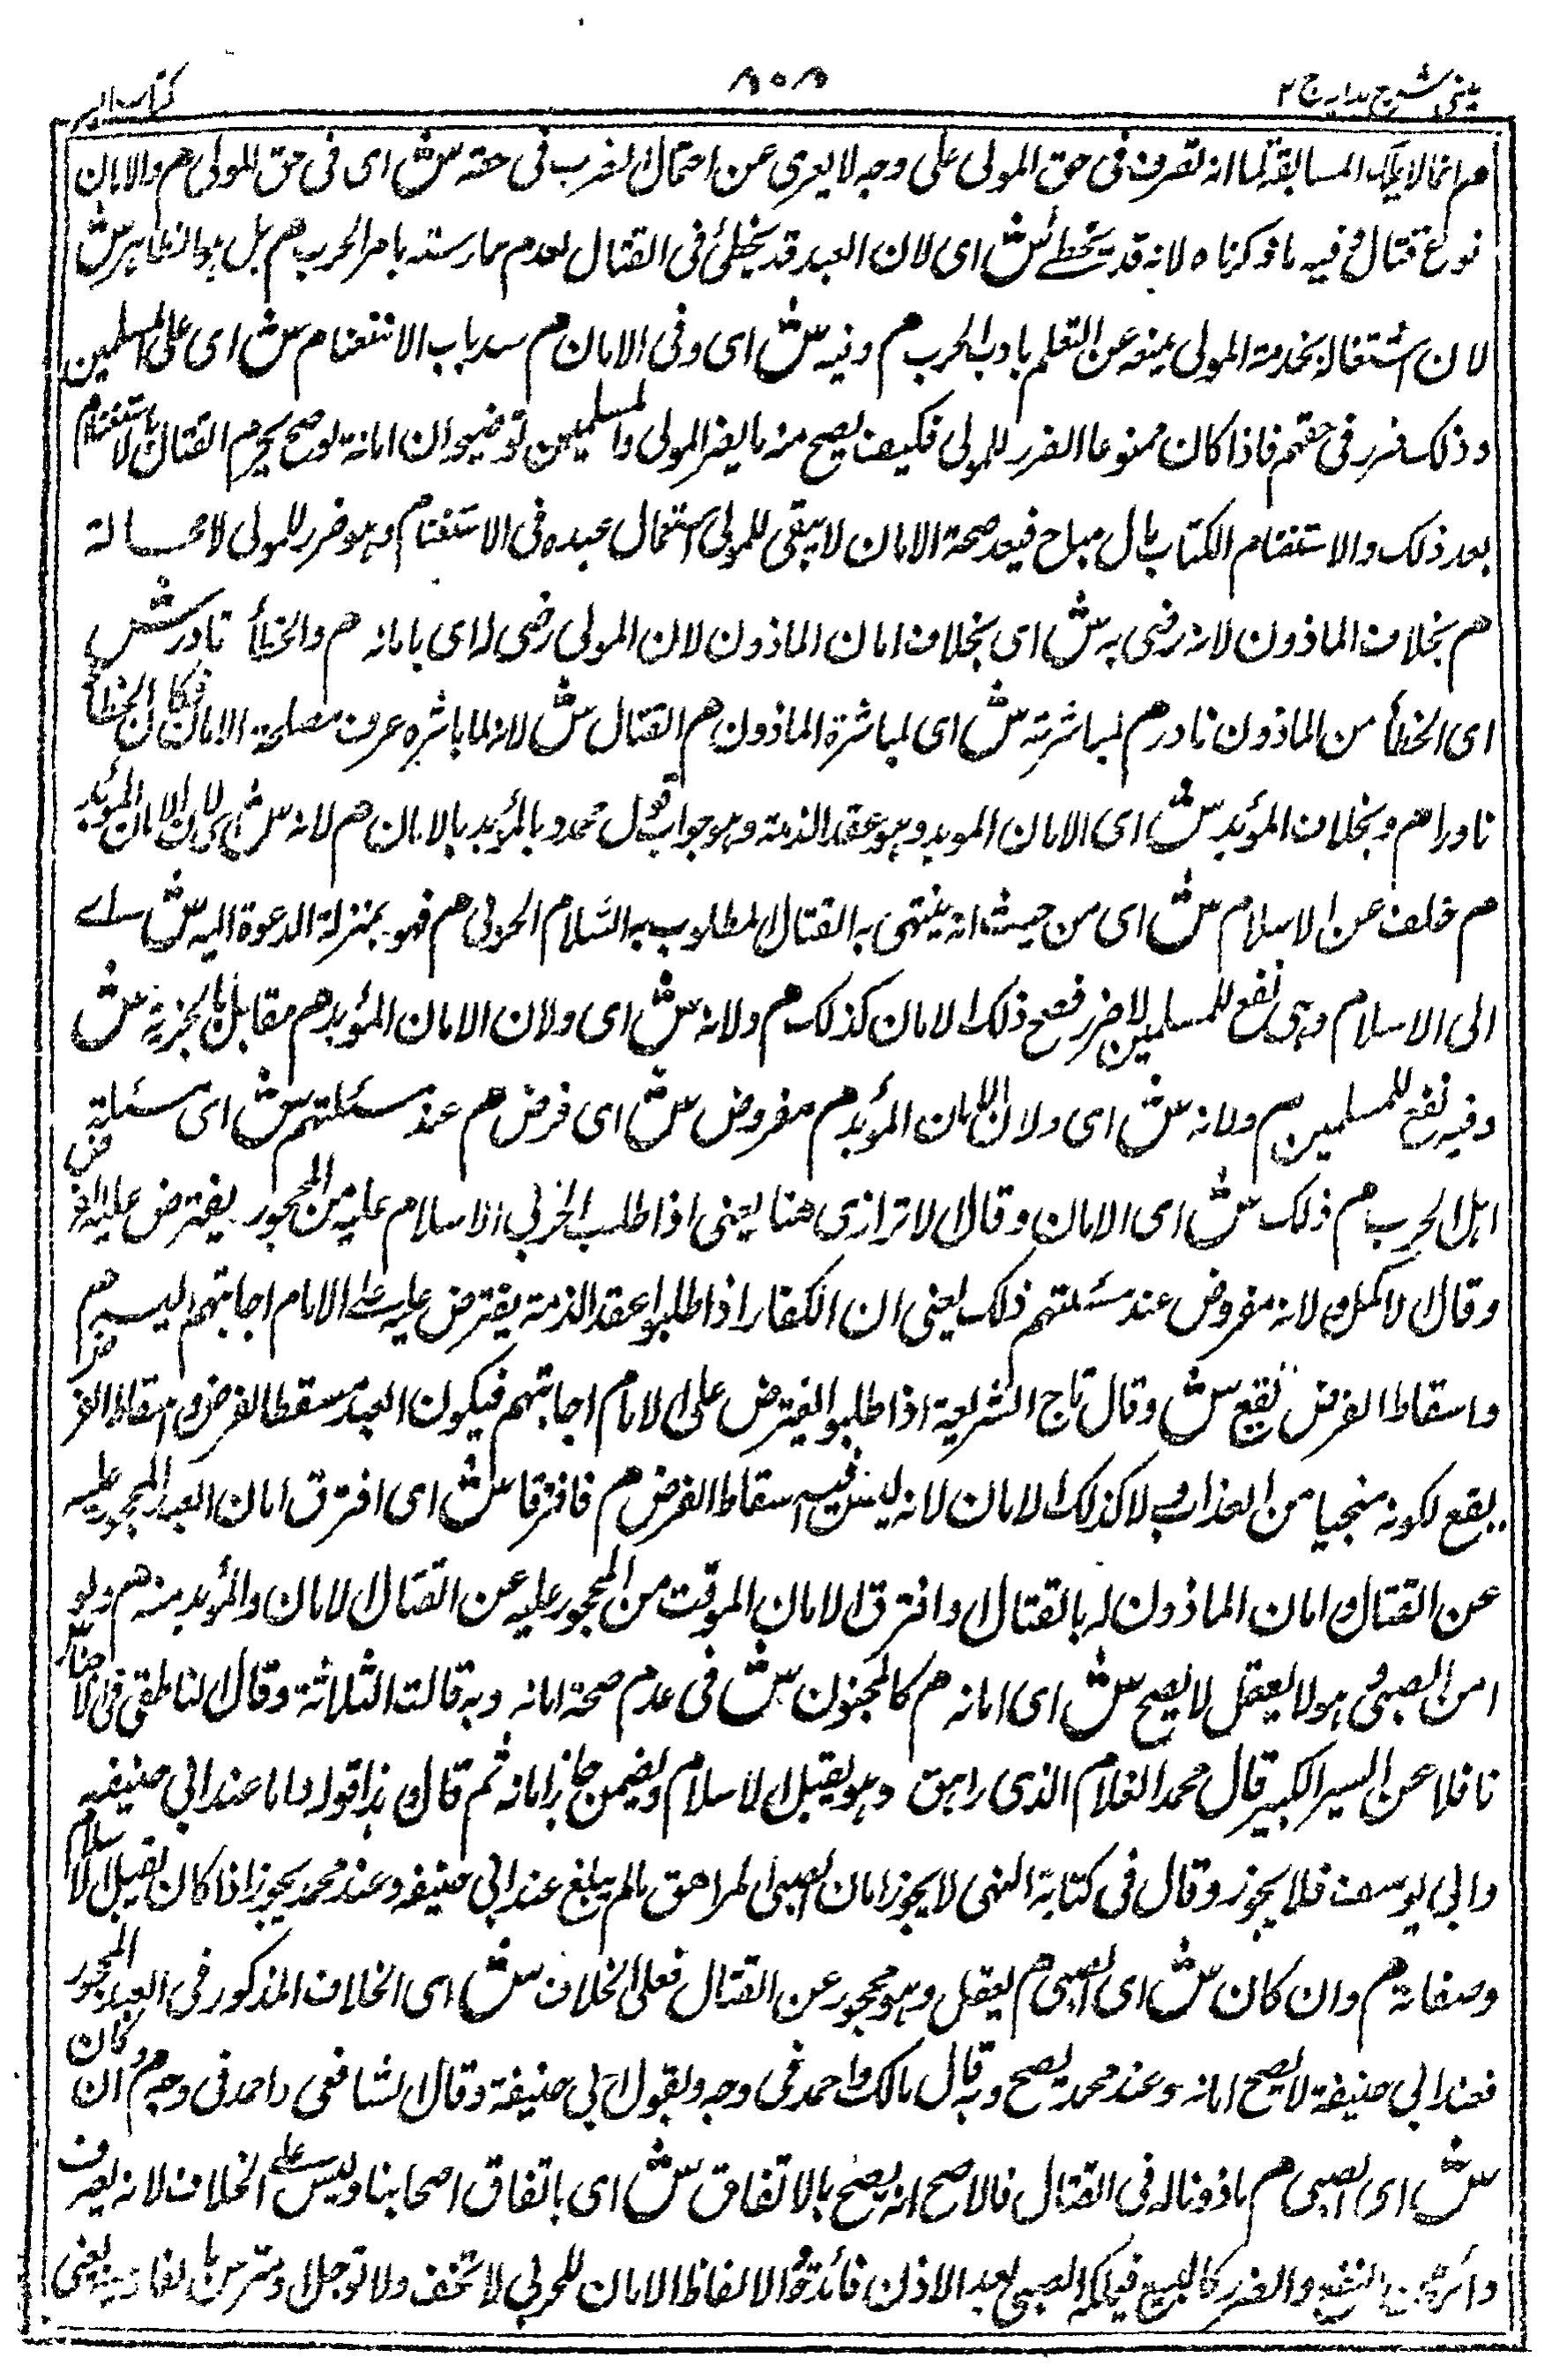 عینی شرح ہدایہ ج ۲
۸۰۸
کتاب السیر
م انما لا یملک المسابقة لما انه تصرف فی حق المولی علی وجه لا یعری عن احتمال الضرب فی حقه ش ای فی حق المولی م والامان
نوع قتال وفیه ما ذکرناه لانه قد یخطی ش ای لان العبد قد یخطئ فی القتال لعدم ممارسته بامر الحرب م بل هو الظاهر ش
لان اشتغاله بخدمة المولی یمنعه عن التعلم باداب الحرب م وفیه ش ای وفی الامان م سد باب الاستغنام ش ای علی المسلمین
وذلک ضرر فی حقهم فاذا کان ممنوعا الضرر للمولی فکیف یصح منه ما یضر المولی والمسلمین توضیحه ان امانه لو صح یحرم القتال والاستغنام
بعد ذلک والاستغنام اکتساب مال مباح فبعد صحة الامان لا یبقی للمولی استعمال عبده فی الاستغنام وهو ضرر للمولی لا محالة
م بخلاف الماذون لانه رضی به ش ای بخلاف امان الماذون لان المولی رضی له ای بامانه م والخطأ نادر ش
ای الخطأ من الماذون نادر م لمباشرته ش ای لمباشرة الماذون م القتال ش لانه لما باشره عرف مصلحة الامان فکان الخطأ
نادرا م وبخلاف المؤبد ش ای الامان الموبد وهو عقد الذمة وهو جواب قول محمد وبالمؤبد بالامان م لانه ش ای لان الامان المؤبد
م خلف عن الاسلام ش ای من حیث انه ینتهی به القتال المطلوب به اسلام الحربی م فهو بمنزلة الدعوة الیه ش ای
الی الاسلام وهی نفع للمسلمین لا ضرر فصح ذلک الامان کذلک م ولانه ش ای ولان الامان المؤبد م مقابل بالجزیة ش
وفیه نفع للمسلمین م ولانه ش ای ولان الامان المؤبد م مفروض ش ای فرض م عند مسئلتهم ش ای مسئلة
اهل الحرب م ذلک ش ای الامان وقال الاترازی هنا یعنی اذا طلب الحربی الاسلام علیه من المحجور یفترض علیه العرض
وقال الاکمل لانه مفروض عند مسئلتهم ذلک یعنی ان الکفار اذا طلبوا عقد الذمة یفترض علیه علی الامام اجابتهم الیه م
واسقاط الفرض نفع ش وقال تاج الشریعة اذا طلبوا یفترض علی الامام اجابتهم فیکون العبد مسقطا لفرض واسقاط الفرض
یقع لکونه منجیا من العذاب ولا کذلک الامان لانه لیس فیه اسقاط الفرض م فافترقا ش ای افترق امان العبد المحجور علیه
عن القتال وامان الماذون له بالقتال وافترق الامان الموقت من المحجور علیه عن القتال الامان والمؤبد منه م ولو
امن الصبی وهو لا یعقل لا یصح ش ای امانه م کالمجنون ش فی عدم صحة امانه وبه قالت الثلاثة وقال الناطفی فی الاجناس
ناقلا عن السیر الکبیر قال محمد الغلام الذی راهق وهو یقبل الاسلام ویضمن جاز امانه ثم قال هذا قوله واما عند ابی حنیفة
وابی یوسف فلا یجوز وقال فی کتابة النهی لا یجوز امان الصبی المراهق ما لم یبلغ عند ابی حنیفه وعند محمد یجوز اذا کان یقبل الاسلام
وصفاته م وان کان ش ای الصبی م یعقل وهو محجور عن القتال فعلی الخلاف ش ای الخلاف المذکور فی العبد المحجور
فعند ابی حنیفة لا یصح امانه وعند محمد یصح وبه قال مالک واحمد فی وجه وبقول ابی حنیفة وقال الشافعی واحمد فی وجه م وان کان
ش ای الصبی م ماذونا له فی القتال فالاصح انه یصح بالاتفاق ش ای باتفاق اصحابنا ولیس علی الخلاف لانه یعرف
دائر بین النفع والضرر کالبیع فیملکه الصبی بعد الاذن فائدة الالفاظ الامان للحربی لا تخف ولا توجل او مترس بالفارسیة یعنی